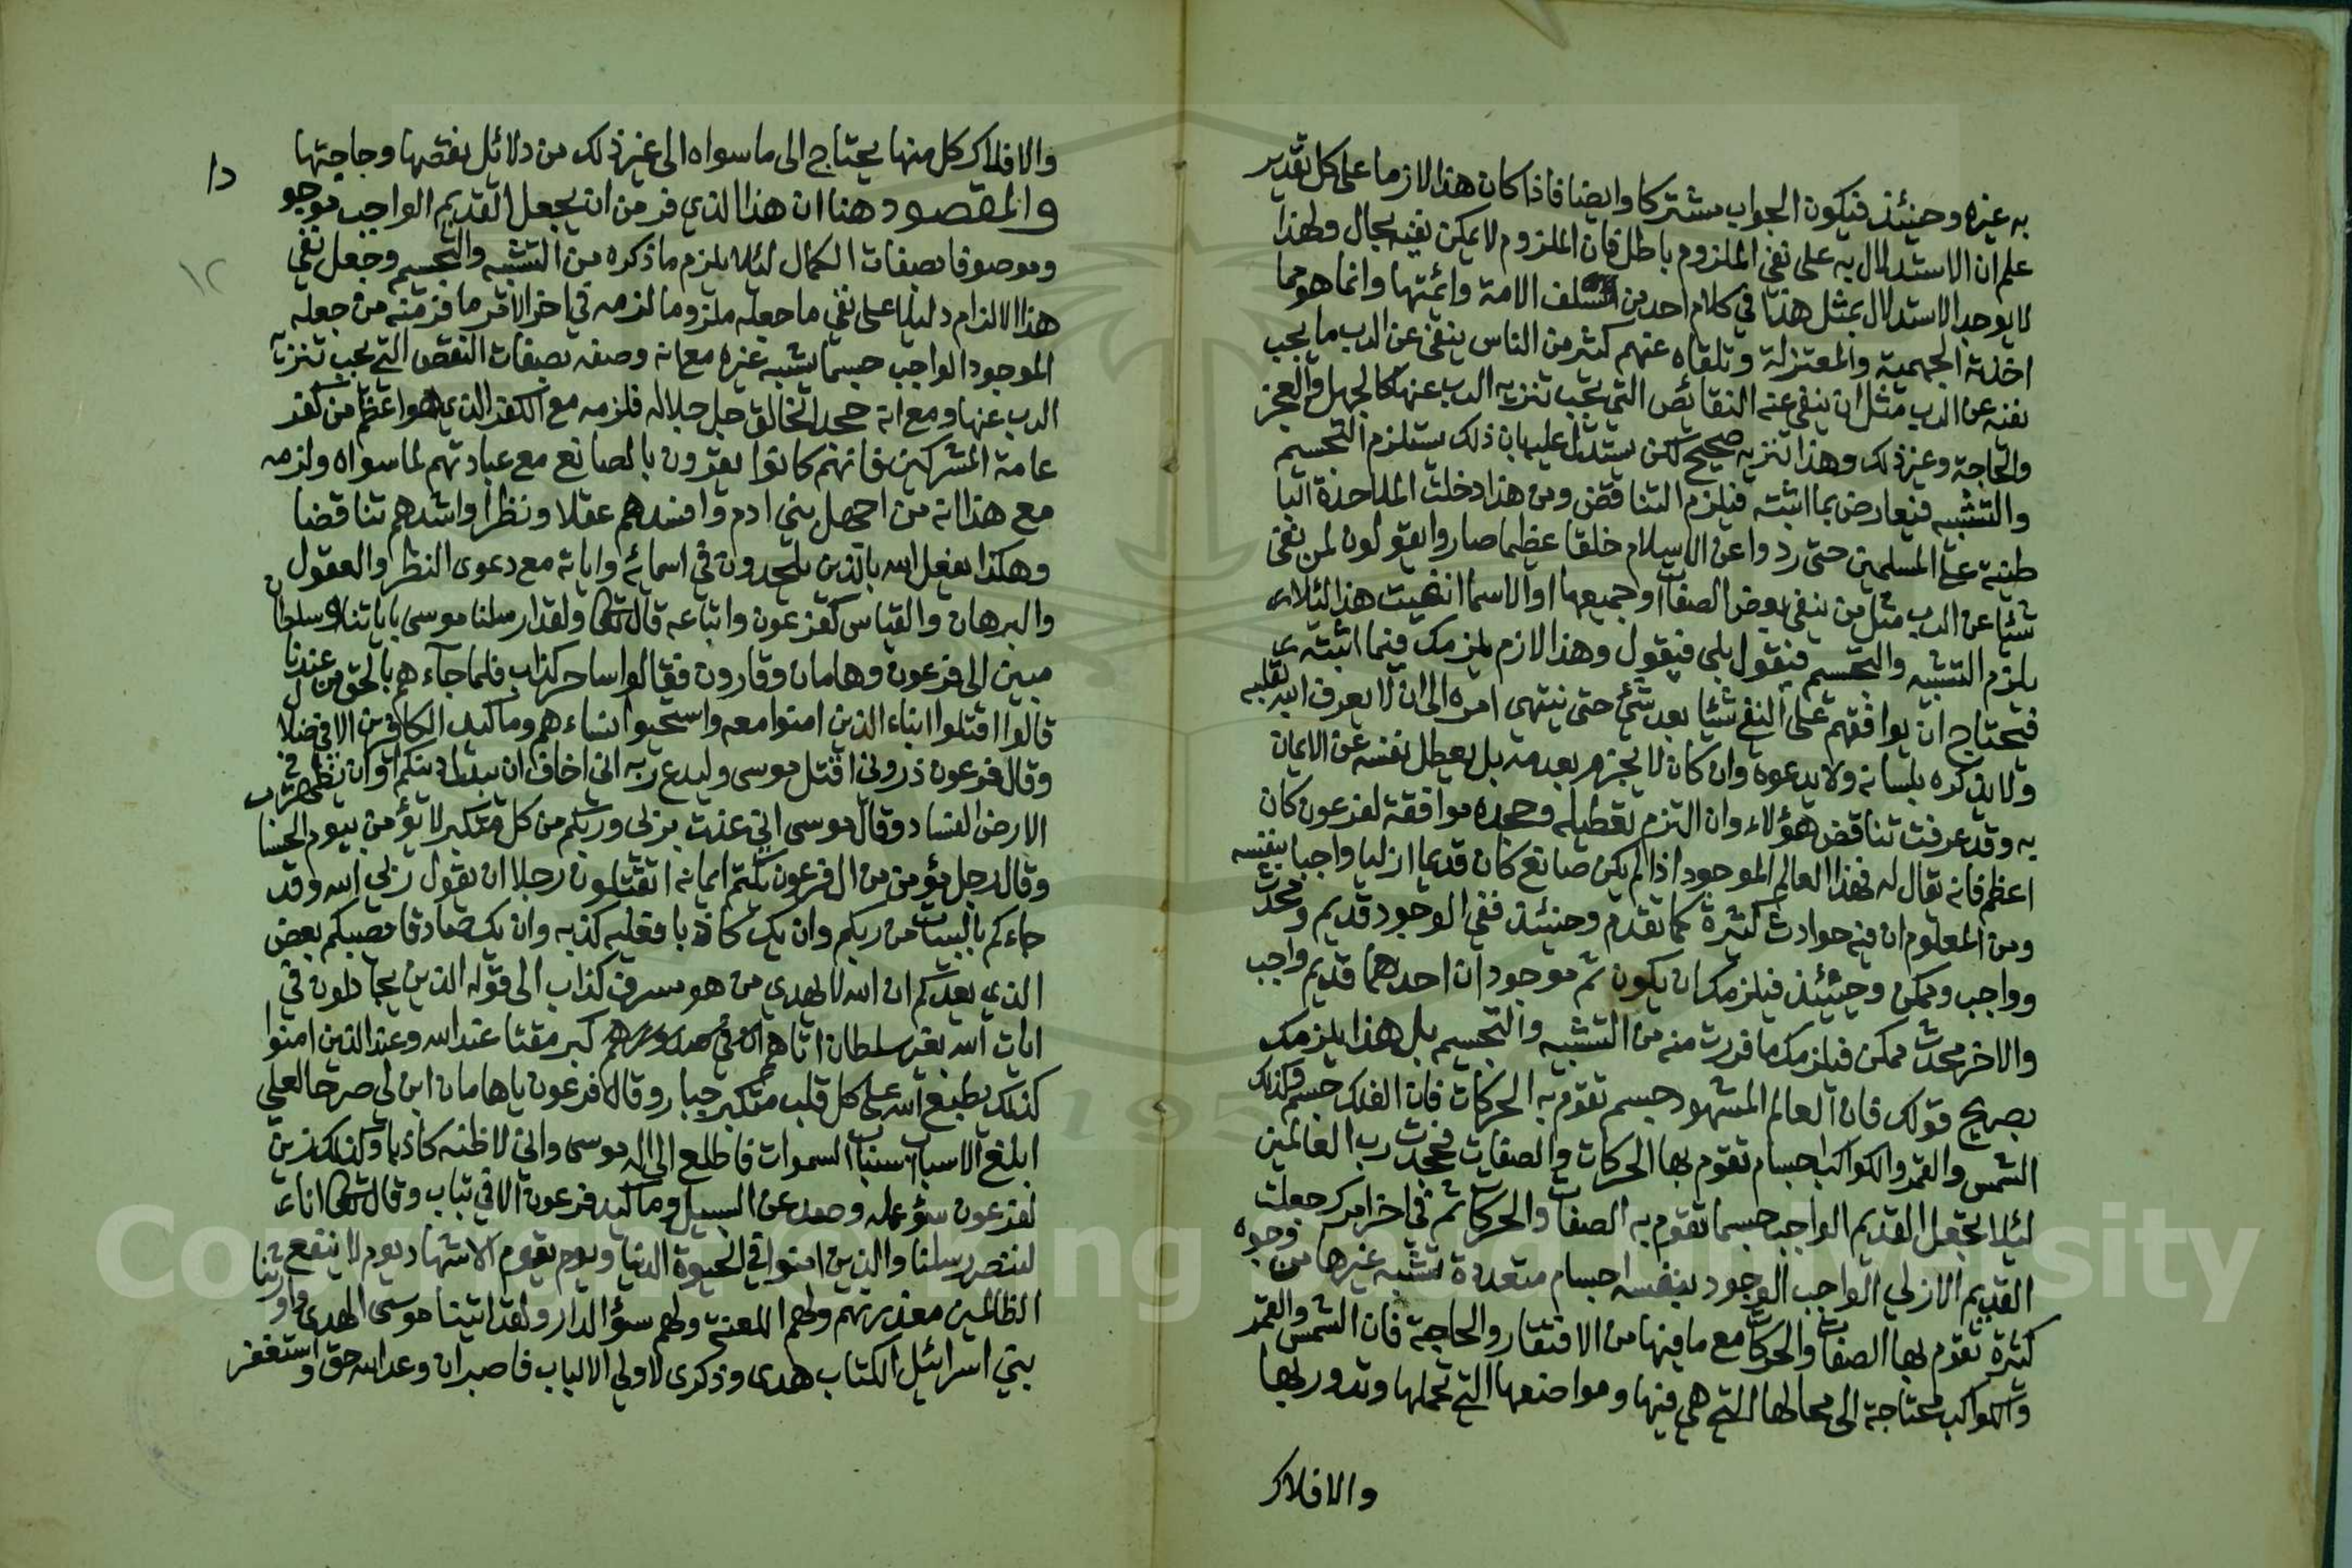 به غيره وحينئذ فيكون الجواب مشتركا وايضا فاذا كان هذا لازما على كل تقدير
علم ان الاستدلال به على نفي الملزوم باطل فان الملزوم لا يمكن نفيه بحال ولهذا
لا يوجد الاستدلال بمثل هذا في كلام احد من سلف الامة وائمتها وانما هو مما
اخذته الجهمية والمعتزلة وتلقاه عنهم كثير من الناس ينفي عن الرب ما يجب
نفيه عن الرب مثل ان ينفي عنه النقائص التي يجب تنزيه الرب عنها كالجهل والعجز
والحاجة وغير ذلك وهذا تنزيه صحيح لكن يستدل عليه بان ذلك يستلزم التجسيم
والتشبيه فيعارض بما اثبته فيلزم التناقض ومن هذا دخلت الملاحدة البا
طنية على المسلمين حتى ردوا عن الاسلام خلقا عظيما صاروا يقولون لمن نفى
شيئا عن الرب مثل من ينفي بعض الصفات او جميعها او الاسما انفيت هذا لئلا
يلزم التشبيه والتجسيم فيقول بلى فيقول وهذا اللازم يلزمك فيما اثبته
فيحتاج ان يوافقهم على النفي شيئا بعد شئ حتى ينتهي امره الى ان لا يعرف الله بقلبه
ولا يذكره بلسانه ولا يدعوه وان كان لا يجزم بعدمه بل يعطل نفسه عن الايمان
به وقد عرفت تناقض هؤلاء وان التزم تعطيله وجحده موافقة لفرعون كان
اعظم فانه يقال له فهذا العالم الموجود اذا لم يكن صانع كان قديما ازليا واجبا بنفسه
ومن المعلوم ان فيه حوادث كثيرة كما تقدم وحينئذ ففي الوجود قديم ومحدث
وواجب وممكن وحينئذ فيلزمك ان يكون ثم موجودان احدهما قديم واجب
والاخر محدث ممكن فيلزمك ما فررت منه من التشبيه والتجسيم بل هذا يلزمك
بصريح قولك فان العالم المشهود جسم تقوم به الحركات فان الفلك جسم وكذلك
الشمس والقمر والكواكب اجسام تقوم بها الحركات والصفات فجحدت رب العالمين
لئلا تجعل القديم الواجب جسما تقوم به الصفات والحركات ثم في اخر امرك جعلت
القديم الازلي الواجب الوجود بنفسه اجسام متعددة تشبه غيرها من وجوه
كثيرة تقوم بها الصفات والحركات مع ما فيها من الافتقار والحاجة فان الشمس والقمر
والكواكب محتاجة الى محالها التي هي فيها ومواضعها التي تحملها وتدور بها
والافلاك
والافلاك كل منها يحتاج الى ما سواه الى غير ذلك من دلائل نقصها وحاجتها
والمقصود هنا ان هذا الذي فر من ان يجعل القديم الواجب موجو
وموصوفا بصفات الكمال لئلا يلزم ما ذكره من التشبيه والتجسيم وجعل نفي
هذا الالزام دليلا على نفي ما جعله ملزوما لزمه في اخر الامر ما فر منه من جعله
الموجود الواجب جسما يشبه غيره مع انه وصفه بصفات النقص التي يجب تنزيه
الرب عنها ومع انه جحد الخالق جل جلاله فلزمه مع الكفر الذي هو اعظم من كفر
عامة المشركين فانهم كانوا يقرون بالصانع مع عبادتهم لما سواه ولزمه
مع هذا انه من اجهل بني ادم وافسدهم عقلا ونظرا واشدهم تناقضا
وهكذا يفعل الله بالذين يلحدون في اسمائه واياته مع دعوى النظر والعقول
والبرهان والقياس كفرعون واتباعه قال تعالى ولقد ارسلنا موسى باياتنا وسلطان
مبين الى فرعون وهامان وقارون فقالوا ساحر كذاب فلما جاءهم بالحق من عندنا
قالوا اقتلوا ابناء الذين امنوا معه واستحيوا نساءهم وما كيد الكافرين الا في ضلال
وقال فرعون ذروني اقتل موسى وليدع ربه اني اخاف ان يبدل دينكم او ان يظهر في
الارض الفساد وقال موسى اني عذت بربي وربكم من كل متكبر لا يؤمن بيوم الحساب
وقال رجل مؤمن من ال فرعون يكتم ايمانه اتقتلون رجلا ان يقول ربي الله وقد
جاءكم بالبينات من ربكم وان يك كاذبا فعليه كذبه وان يك صادقا يصيبكم بعض
الذي يعدكم ان الله لا يهدي من هو مسرف كذاب الى قوله الذين يجادلون في
ايات الله بغير سلطان اتاهم كبر مقتا عند الله وعند الذين امنوا
كذلك يطبع الله على كل قلب متكبر جبار وقال فرعون ياهامان ابن لي صرحا لعلي
ابلغ الاسباب اسباب السموات فاطلع الى اله موسى واني لاظنه كاذبا وكذلك زين
لفرعون سؤ عمله وصد عن السبيل وما كيد فرعون الا في تباب وقال تعالى انا
لننصر رسلنا والذين امنوا في الحيوة الدنيا ويوم يقوم الاشهاد يوم لا ينفع
الظالمين معذرتهم ولهم اللعنة ولهم سؤ الدار ولقد اتينا موسى الهدى واورثنا
بني اسرائيل الكتاب هدى وذكرى لاولي الالباب فاصبر ان وعد الله حق واستغفر
١٢
1957